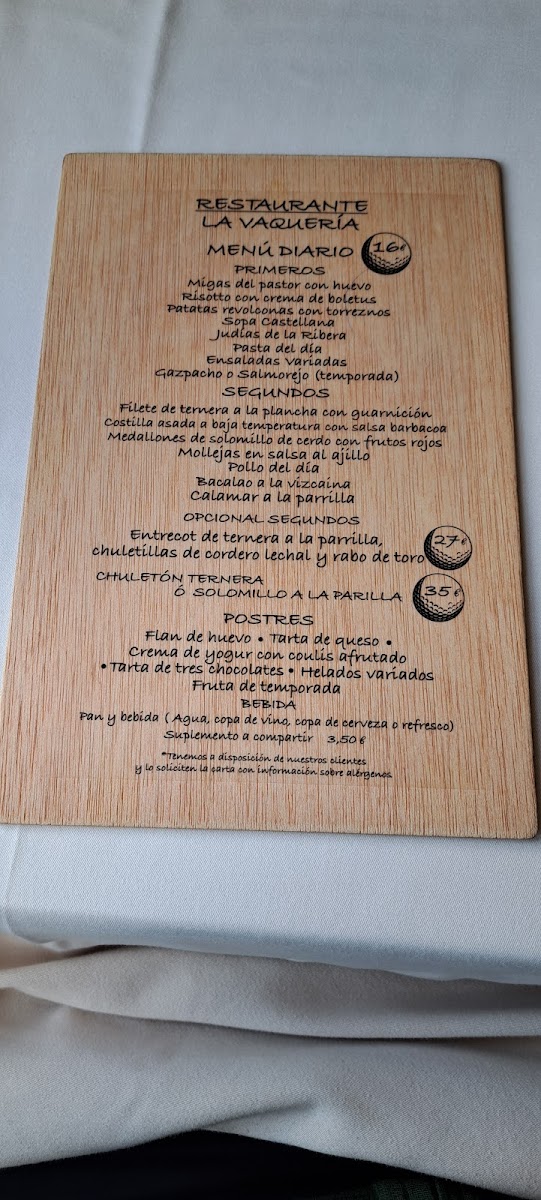 RESTAURANTE
LA VAQUERÍA
MENÚ DIARIO 16€
PRIMEROS
Migas del pastor con huevo
Risotto con crema de boletus
Patatas revolconas con torreznos
Sopa Castellana
Judías de la Ribera
Pasta del día
Ensaladas variadas
Gazpacho o Salmorejo (temporada)
SEGUNDOS
Filete de ternera a la plancha con guarnición
Costilla asada a baja temperatura con salsa barbacoa
Medallones de solomillo de cerdo con frutos rojos
Mollejas en salsa al ajillo
Pollo del día
Bacalao a la vizcaina
Calamar a la parrilla
OPCIONAL SEGUNDOS
Entrecot de ternera a la parrilla,
chuletillas de cordero lechal y rabo de toro 27€
CHULETÓN TERNERA
Ó SOLOMILLO A LA PARILLA 35€
POSTRES
Flan de huevo • Tarta de queso •
Crema de yogur con coulis afrutado
• Tarta de tres chocolates • Helados variados
Fruta de temporada
BEBIDA
Pan y bebida ( Agua, copa de vino, copa de cerveza o refresco)
Suplemento a compartir 3,50 €
*Tenemos a disposición de nuestros clientes
y lo soliciten la carta con información sobre alérgenos